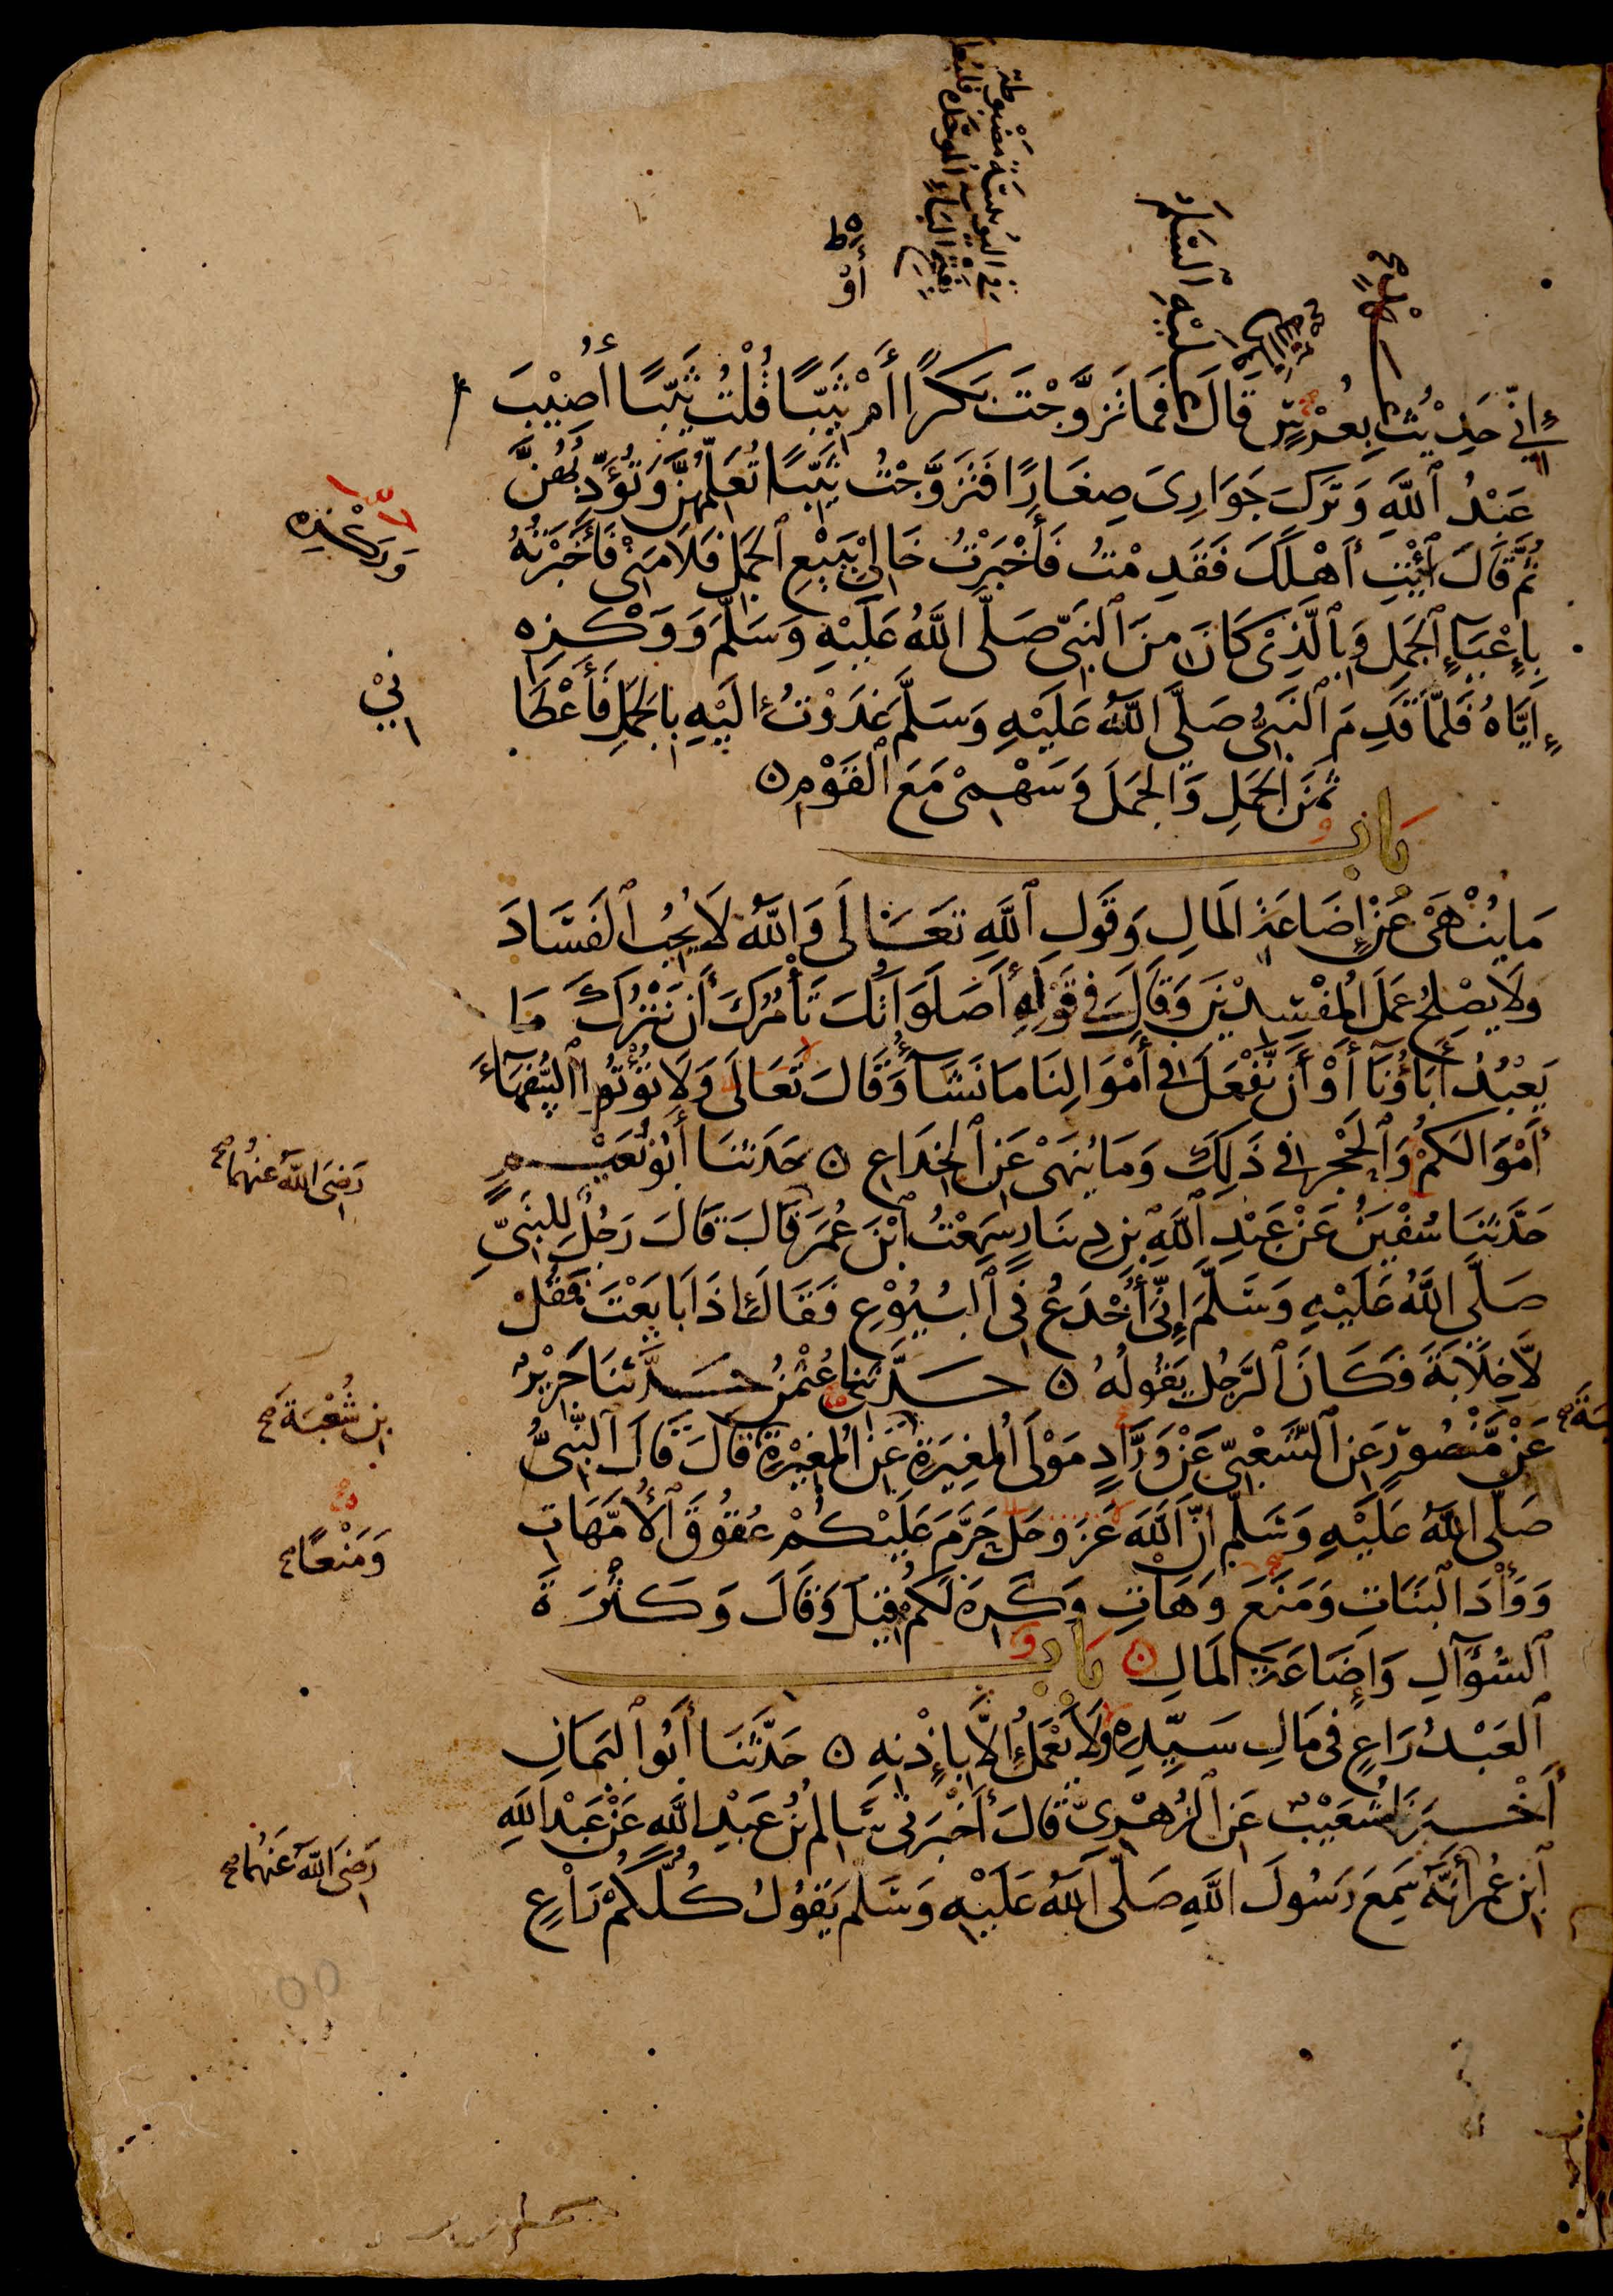 إِنِّي حَدِيْثُ بِعُرْسٍ قَالَ فَمَا تَزَوَّجْتَ بِكْرًا أَمْ ثَيِّبًا قُلْتُ ثَيِّبًا أُصِيْبَ
عَبْدُ ٱللَّهِ وَتَرَكَ جَوَارِىَ صِغَارًا فَتَزَوَّجْتُ ثَيِّبًا تُعَلِّمُهُنَّ وَتُؤَدِّبُهُنَّ
ثُمَّ قَالَ ٱئْتِ أَهْلَكَ فَقَدِمْتُ فَأَخْبَرْتُ خَالِىْ بِبَيْعِ ٱلْجَمَلِ فَلَامَنِىْ فَأَخْبَرْتُهُ
بِإِعْيَآءِ ٱلْجَمَلِ وَبِٱلَّذِىْ كَانَ مِنَ ٱلنَّبِىِّ صَلَّى اللَّهُ عَلَيْهِ وَسَلَّمَ وَوَكْزِهِ
إِيَّاهُ فَلَمَّا قَدِمَ ٱلنَّبِىُّ صَلَّى اللَّهُ عَلَيْهِ وَسَلَّمَ غَدَوْتُ إِلَيْهِ بِالْجَمَلِ فَأَعْطَا
نِيْ
ثَمَنَ الْجَمَلِ وَالْجَمَلَ وَسَهْمِىْ مَعَ ٱلْقَوْمِ
بَابُ
مَا يُنْهَى عَنْ إِضَاعَةِ الْمَالِ وَقَوْلِ ٱللَّهِ تَعَالَى وَاللَّهُ لَا يُحِبُّ ٱلْفَسَادَ
وَلَا يُصْلِحُ عَمَلَ الْمُفْسِدِيْنَ وَقَالَ فِي قَوْلِهِ أَصَلَوَاتُكَ تَأْمُرُكَ أَن نَّتْرُكَ مَا
يَعْبُدُ أَبَاؤُنَا أَوْ أَن نَّفْعَلَ فِي أَمْوَالِنَا مَا نَشَآءُ وَقَالَ تَعَالَى وَلَا تُؤْتُوا ٱلسُّفَهَآءَ
أَمْوَالَكُمْ وَٱلْحَجْرِ فِي ذَلِكَ وَمَا يُنْهَىْ عَنِ ٱلْخِدَاعِ حَدَّثَنَا أَبُو نُعَيْمٍ
حَدَّثَنَا سُفْيَنُ عَنْ عَبْدِ ٱللَّهِ بْنِ دِيْنَارٍ سَمِعْتُ ٱبْنَ عُمَرَ قَالَ قَالَ رَجُلٌ لِلنَّبِىِّ
رَضِىَ اللَّهُ عَنْهُمَا صح
صَلَّى اللَّهُ عَلَيْهِ وَسَلَّمَ إِنِّىْ أُخْدَعُ فِي ٱلْبُيُوْعِ فَقَالَ إِذَا بَايَعْتَ فَقُلْ
لَّا خِلَابَةَ فَكَانَ ٱلرَّجُلُ يَقُولُهُ حَدَّثَنَا عُثْمَنُ حَدَّثَنَا جَرِيْرٌ
عَنْ مَّنْصُورٍ عَنِ ٱلشَّعْبِىِّ عَنْ وَرَّادٍ مَوْلَى الْمُغِيرَةِ عَنِ الْمُغِيْرَةِ قَالَ قَالَ النَّبِىُّ
بْنِ شُعْبَةَ صح
صَلَّى اللَّهُ عَلَيْهِ وَسَلَّمَ إِنَّ اللَّهَ عَزَّ وَجَلَّ حَرَّمَ عَلَيْكُمْ عُقُوقَ ٱلْأُمَّهَاتِ
وَوَأْدَ الْبَنَاتِ وَمَنَعَ وَهَاتِ وَكَرِهَ لَكُمْ قِيْلَ وَقَالَ وَكَثْرَةَ
وَمَنْعًا صح
ٱلسُّؤَالِ وَإِضَاعَةَ الْمَالِ بَابُ
ٱلْعَبْدُ رَاعٍ فِى مَالِ سَيِّدِهِ وَلَا يَعْمَلُ إِلَّا بِإِذْنِهِ حَدَّثَنَا أَبُو ٱلْيَمَانِ
أَخْبَرَنَا شُعَيْبٌ عَنِ ٱلزُّهْرِىِّ قَالَ أَخْبَرَنِىْ سَالِمُ بْنُ عَبْدِ اللَّهِ عَنْ عَبْدِ اللَّهِ
ٱبْنِ عُمَرَ أَنَّهُ سَمِعَ رَسُولَ اللَّهِ صَلَّى اللَّهُ عَلَيْهِ وَسَلَّمَ يَقُوْلُ كُلُّكُمْ رَاعٍ
رَضِىَ اللَّهُ عَنْهُمَا صح